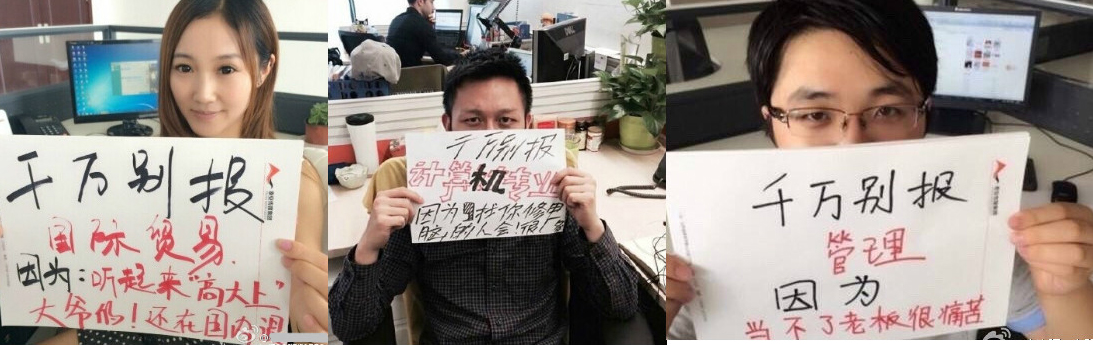 千万别报
国际贸易.
因为：听起来"高大上"
大爷的！还在国内混
千万别报
计算机专业
因为找你修电
脑的人会很广
千万别报
管理
因为
当不了老板很痛苦